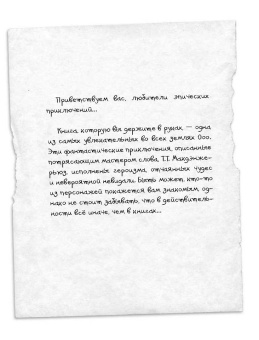 Приветствуем вас, любители эпических
приключений...
Книга, которую вы держите в руках, — одна
из самых увлекательных во всех землях Ооо.
Эти фантастические приключения, описанные
потрясающим мастером слова Т.Т. Макдэнже-
рьюз, исполнены героизма, отчаянных чудес
и невероятной невидали. Быть может, кто-то
из персонажей покажется вам знакомым, од-
нако не стоит забывать, что в действитель-
ности всё иначе, чем в книгах...